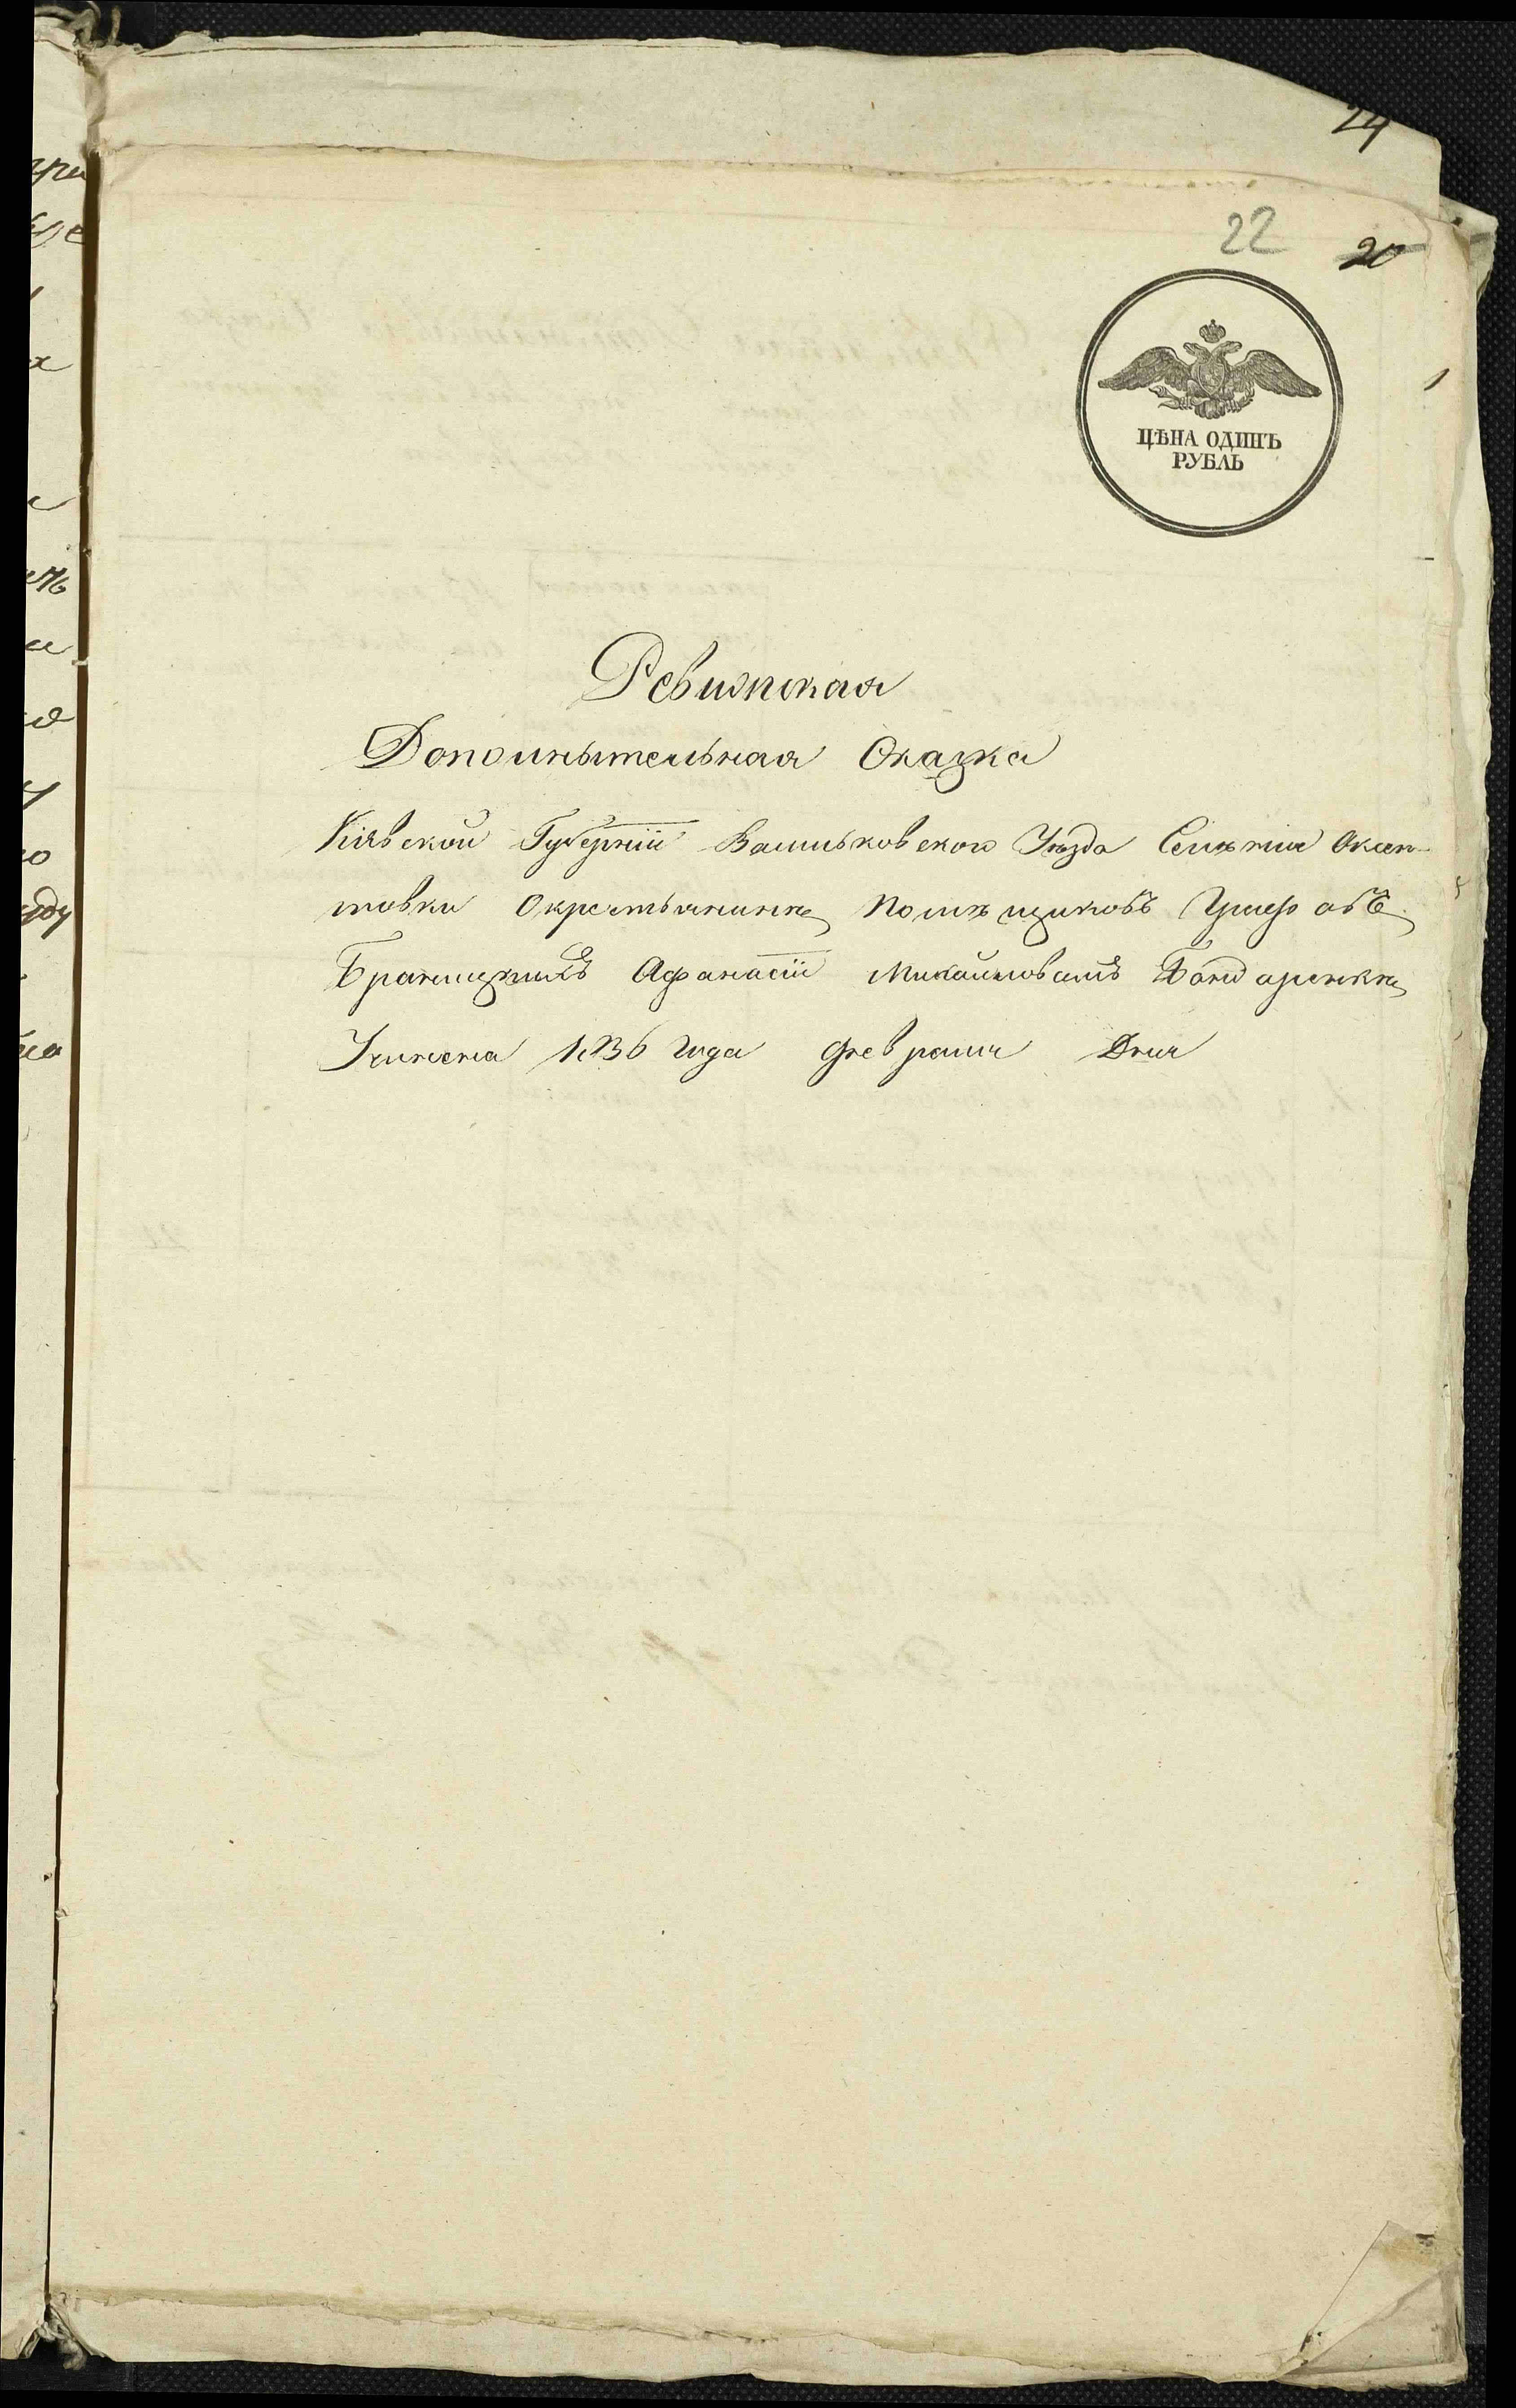 24
22 20
ЦѢНА ОДИНЪ
РУБЛЬ
Ревизская
Дополнытельная Сказка
Кіевской Губерніи Васильковского Уѣзда Селѣнія Оксен-
товки Окрестьянинѣ Помѣщиковъ Графовъ
Браницкихъ Афанасіи Михайловомъ Бондаренкѣ
Учинена 1836 Года Февраля Дня